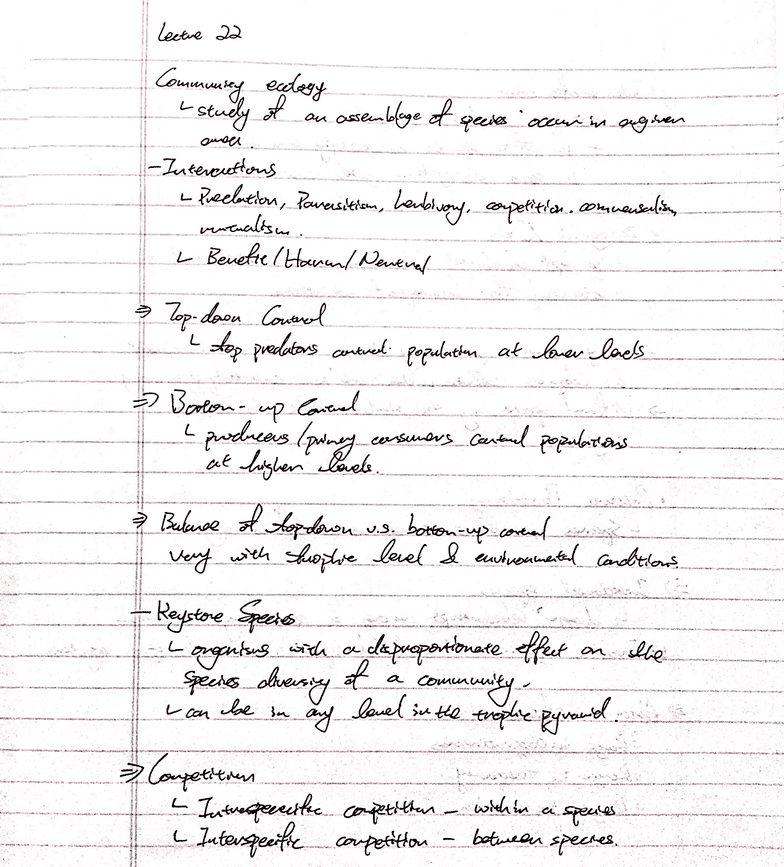 Lecture 22
Community ecology
└ study of an assemblage of species occur in a given
area.
- Interactions
└ Predation, Parasitism, herbivory, competition, commensalism,
mutualism.
└ Benefit/Harm/Neutral
⇒ Top-down Control
└ top predators control population at lower levels
⇒ Bottom-up Control
└ producers/primary consumers control populations
at higher levels.
⇒ Balance of top-down v.s. bottom-up control
vary with trophic level & environmental conditions.
- Keystone Species
└ organisms with a disproportionate effect on the
species diversity of a community.
└ can be in any level in the trophic pyramid.
⇒ Competition
└ Intraspecific competition - within a species
└ Interspecific competition - between species.